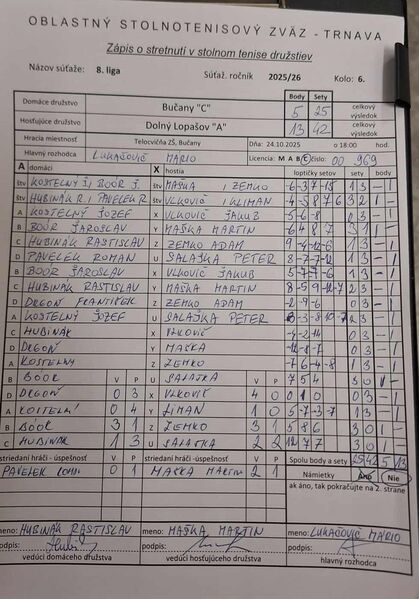 OBLASTNÝ STOLNOTENISOVÝ ZVÄZ - TRNAVA
Zápis o stretnutí v stolnom tenise družstiev
Názov súťaže: 8. liga Súťaž. ročník 2025/26 Kolo: 6.
Body Sety
Domáce družstvo Bučany "C" 5 25 celkový výsledok
Hosťujúce družstvo Dolný Lopašov "A" 13 42 celkový výsledok
Hracia miestnosť Telocvičňa ZŠ, Bučany Dňa: 24.10.2025 o 18:00 hod.
Hlavný rozhodca LUKAČOVIČ MARIO Licencia: M A B C číslo: 00 969
A domáci X hostia loptičky setov sety body
štv KOSTELNÝ J, BOOR J. štv MAŠKA , ZEMKO
štv HUBINÁK R, PAVELEK R štv VLKOVIČ , KLIMAN
A KOSTELNÝ JOZEF X VLKOVIČ JAKUB -5-6-8 0 3 - 1
B BOOR JAROSLAV Y MAŠKA MARTIN
C HUBINÁK RASTISLAV Z ZEMKO ADAM 1 3 - 1
D PAVELEK ROMAN U SALAŠKA PETER 1 3 - 1
B BOOR JAROSLAV X VLKOVIČ JAKUB 1 3 - 1
C HUBINÁK RASTISLAV Y MAŠKA MARTIN 2 3 - 1
D DRGOŇ FRANTIŠEK Z ZEMKO ADAM -2-9-6 0 3 - 1
A KOSTELNÝ JOZEF U SALAŠKA PETER 2 3 - 1
C HUBINÁK X VLKOVIČ -4-2-14 0 3 - 1
D DRGOŇ Y MAŠKA -12-8-7 0 3 - 1
A KOSTELNÝ Z ZEMKO -7 6-4-8 1 3 - 1
B BOOR V P U SALAŠKA V P 7 5 4 3 0 1 -
D DRGOŇ 0 3 X VLKOVIČ 4 0
A KOSTELNÝ 0 4 Y 1 0 -5-7-3-7 1 3 - 1
B BOOR 3 1 Z ZEMKO 3 1 5 8 6 3 0 1 -
C HUBINÁK 1 3 U SALAŠKA 2 2 12 7 7 3 0 1 -
striedaní hráči -úspešnosť V P striedaní hráči -úspešnosť V P Spolu body a sety 25 42 5 13
PAVELEK 0 1 MAŠKA MARTIN 2 1 Námietky Áno Nie
ak áno, tak pokračujte na 2. strane
meno: HUBINÁK RASTISLAV meno: MAŠKA MARTIN meno: LUKAČOVIČ MARIO
podpis: podpis: podpis:
vedúci domáceho družstva vedúci hosťujúceho družstva hlavný rozhodca